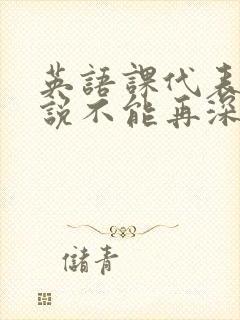 英語課代表
說不能再深
儲青